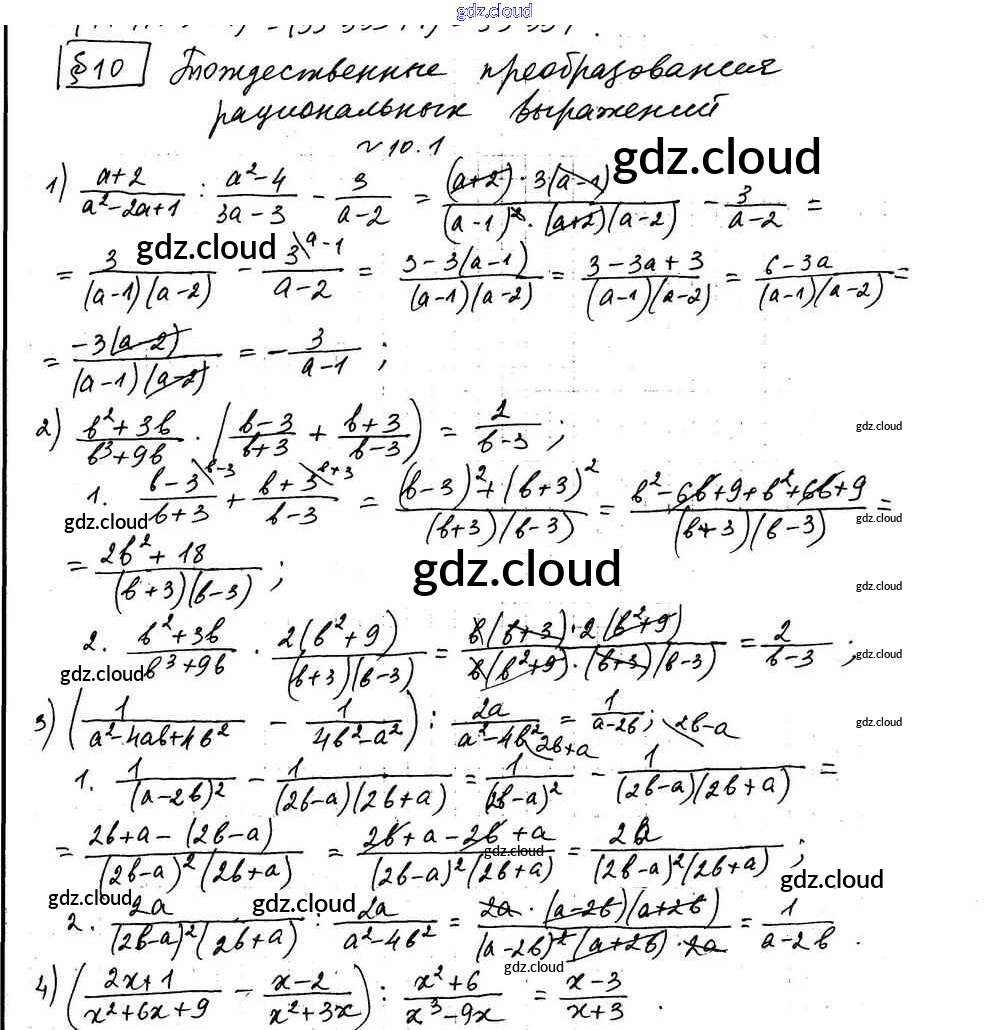 gdz.cloud
§10 Тождественные преобразования
рациональных выражений
№10.1
gdz.cloud
1) (a+2)/(a²-2a+1) : (a²-4)/(3a-3) - 3/(a-2) = ((a+2)·3(a-1))/((a-1)²·(a+2)(a-2)) - 3/(a-2) =
gdz.cloud
= 3/((a-1)(a-2)) - 3\a-1/(a-2) = (3-3(a-1))/((a-1)(a-2)) = (3-3a+3)/((a-1)(a-2)) = (6-3a)/((a-1)(a-2)) =
= (-3(a-2))/((a-1)(a-2)) = -3/(a-1) ;
2) (b²+3b)/(b³+9b) · ((b-3)/(b+3) + (b+3)/(b-3)) = 2/(b-3) ;
gdz.cloud
1. (b-3\b-3)/(b+3) + (b+3\b+3)/(b-3) = ((b-3)²+(b+3)²)/((b+3)(b-3)) = (b²-6b+9+b²+6b+9)/((b+3)(b-3)) =
gdz.cloud
gdz.cloud
= (2b²+18)/((b+3)(b-3)) ;
gdz.cloud
gdz.cloud
2. (b²+3b)/(b³+9b) · (2(b²+9))/((b+3)(b-3)) = (b(b+3)·2(b²+9))/(b(b²+9)·(b+3)(b-3)) = 2/(b-3) ;
gdz.cloud
gdz.cloud
3) (1/(a²-4ab+4b²) - 1/(4b²-a²)) : 2a/(a²-4b²) = 1/(a-2b) ;
gdz.cloud
1. 1/(a-2b)² - 1/((2b-a)(2b+a)) = 1\2b+a/(2b-a)² - 1\2b-a/((2b-a)(2b+a)) =
= (2b+a-(2b-a))/((2b-a)²(2b+a)) = (2b+a-2b+a)/((2b-a)²(2b+a)) = 2a/((2b-a)²(2b+a)) ;
gdz.cloud
gdz.cloud
gdz.cloud
gdz.cloud
2. 2a/((2b-a)²(2b+a)) : 2a/(a²-4b²) = (2a·(a-2b)(a+2b))/((a-2b)²(a+2b)·2a) = 1/(a-2b) .
gdz.cloud
4) ((2x+1)/(x²+6x+9) - (x-2)/(x²+3x)) : (x²+6)/(x³-9x) = (x-3)/(x+3) .